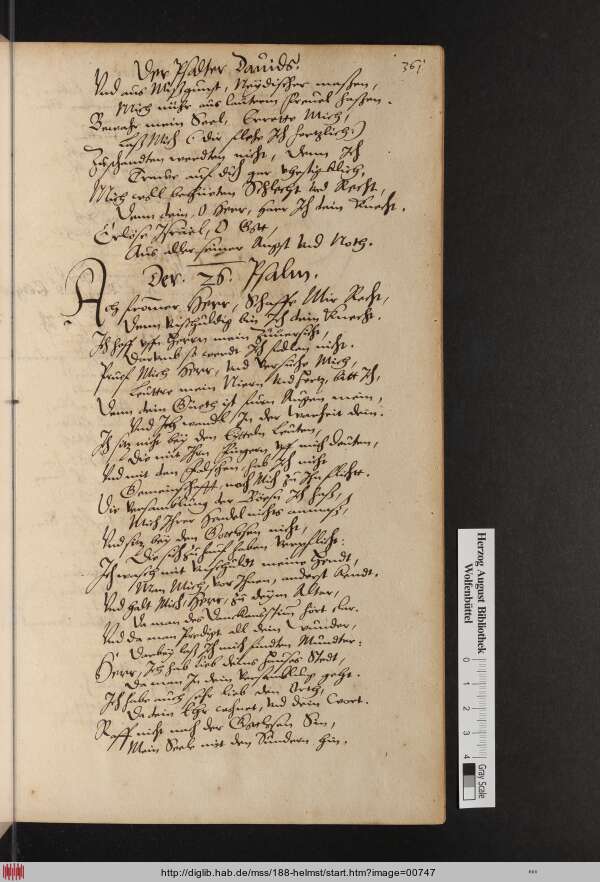 Der Psalter Dauids.
361
Vnd aus Missgunst, Neydischer massen,
Mich nuhr aus lauterm Freuel hassen.
Bewahr mein Seel, Errette Mich,
Lass Mich (dir flehe Ich hertzlich)
Zuschandten werdten nicht, Denn Ich
Traue auf dich gar
Mich woll behüeten Schlecht vnd Recht,
Denn dein, O Herr, Ich dein Knecht.
Erlöse Israel, O Gott,
Aus aller seiner Angst vnd Noth.
Der. 26. Psalm.
Ach frommer Herr, Schaffe Mir Recht,
Denn Vnschuldig bin Ich dein Knecht.
Ich hoff vfn Herrn mein Zuuersicht,
Darumb so werde Ich fallen nicht.
Prüef Mich Herr, vnd Versuche Mich,
Leutter mein Niern vnd Hertz, bitt Ich,
Denn dein Güeth ist fürn Augen mein,
Vnd Ich wandl In der Warheit dein.
Ich sitz nicht bey den Eytteln Leuten,
Die mit Ihrn Fingern vf mich deuten,
Vnd mit den Falschen hab Ich nicht
Gemeinschafft, noch Mich zu Ihn
Die Versamblung der Bösen Ich hass,
Mich Ihrer Handel nichts anmass,
Vnd sitz bey den Gottlosen nicht,
Die sich zu hauf haben verpflicht:
Ich wasch mit Vnschuldt meine Hendt,
Mich, vor Ihnen, anderst
Vnd halt Mich, Herr, zu deim Altar,
Da man des Danckens Stim hört klar.
Vnd da man Prediget all dein Wunder,
Darbey lest Ich mich findten Mundter:
Herr, Ich hab lieb deins Hauses Stedt,
Da man In dein Versamblung geht.
Ich habe auch sehr lieb den Orth,
Da dein Ehr wohnet, vnd dein Wort.
Raff nicht nach der Gottlosen Sin,
Mein Seele mit den Sündern hin.
Herzog August Bibliothek
Wolfenbüttel
0 1 2 3 4
Gray Scale
http://diglib.hab.de/mss/188-helmst/start.htm?image=00747